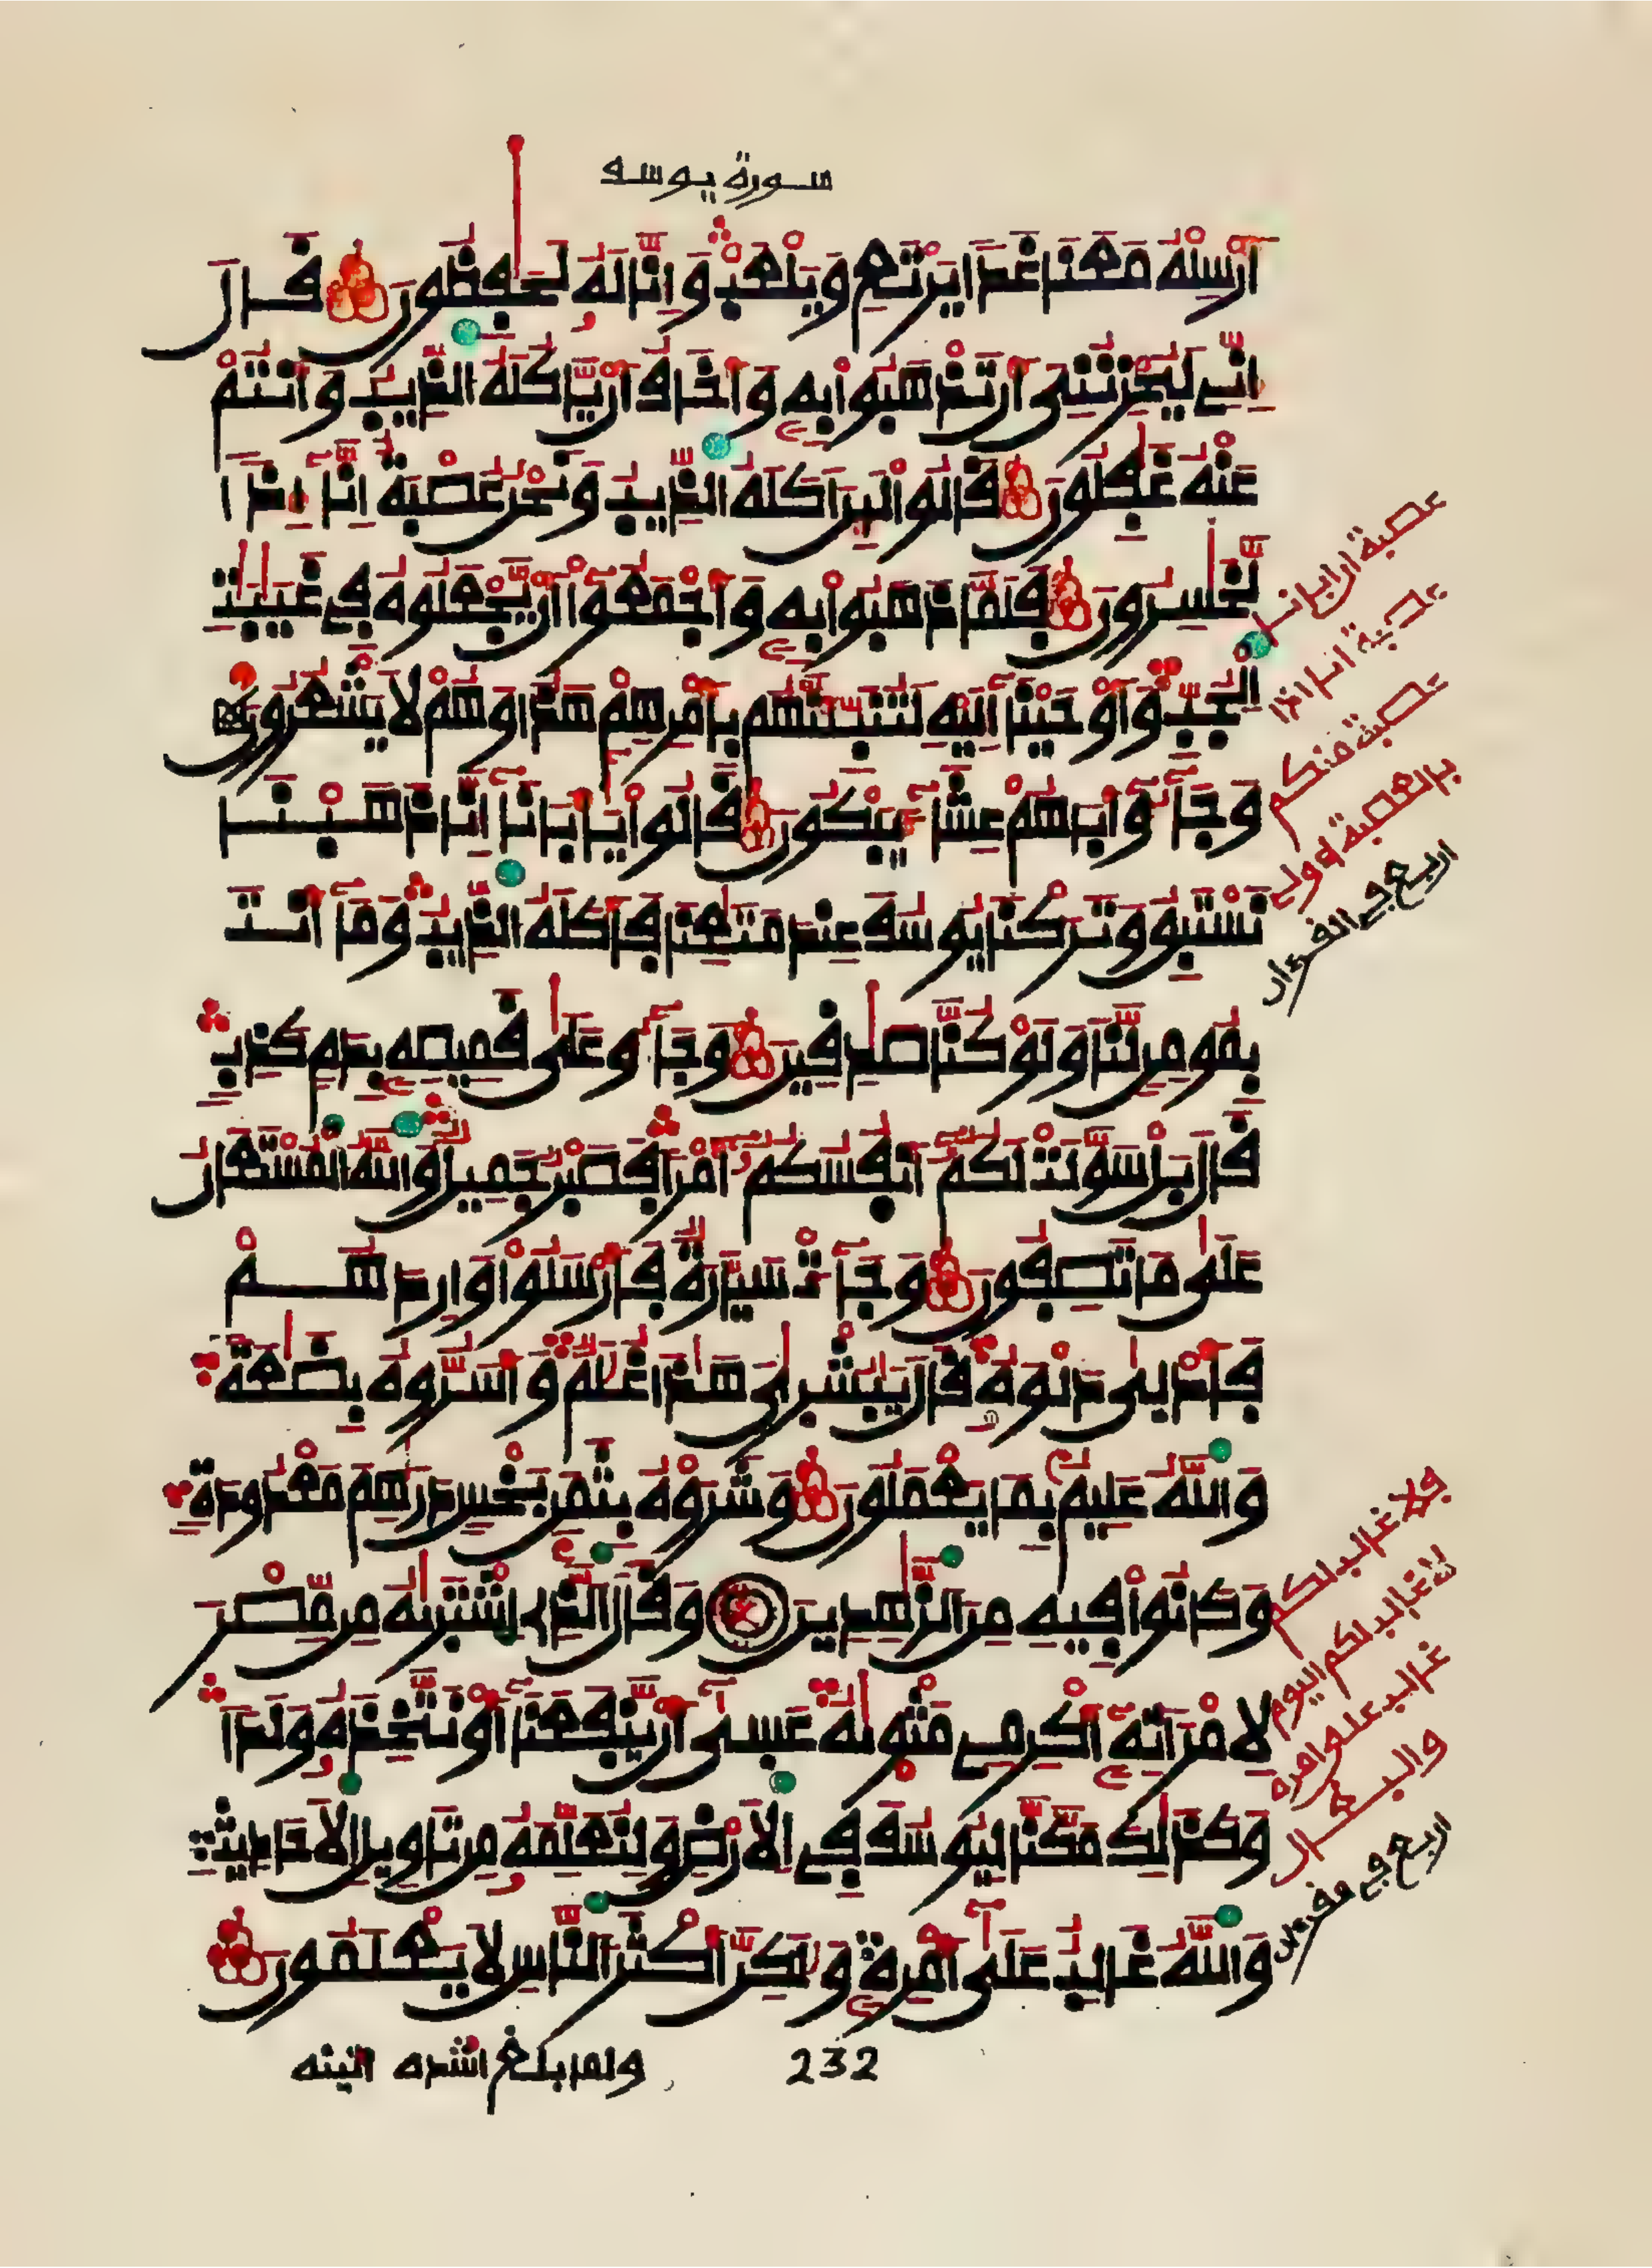 سورة يوسف
أَرْسِلْهُ مَعَنَا غَدًا يَرْتَعِ وَيَلْعَبْ وَإِنَّا لَهُ لَحَٰفِظُونَ قَالَ
إِنِّي لَيُحْزِنُنِي أَن تَذْهَبُوا بِهِ وَأَخَافُ أَنْ يَّاكُلَهُ الذِّيبُ وَأَنتُمْ
عَنْهُ غَٰفِلُونَ قَالُوا لَئِنَ اَكَلَهُ الذِّيبُ وَنَحْنُ عُصْبَةٌ إِنَّا إِذًا
لَّخَٰسِرُونَ فَلَمَّا ذَهَبُوا بِهِ وَأَجْمَعُوا أَنْ يَّجْعَلُوهُ فِي غَيَٰبَٰتِ
الْجُبِّ وَأَوْحَيْنَا إِلَيْهِ لَتُنَبِّئَنَّهُم بِأَمْرِهِمْ هَٰذَا وَهُمْ لَا يَشْعُرُونَ
وَجَاءُو أَبَاهُمْ عِشَاءً يَبْكُونَ قَالُوا يَٰأَبَانَا إِنَّا ذَهَبْنَا
نَسْتَبِقُ وَتَرَكْنَا يُوسُفَ عِندَ مَتَٰعِنَا فَأَكَلَهُ الذِّيبُ وَمَا أَنتَ
بِمُومِنٍ لَّنَا وَلَوْ كُنَّا صَٰدِقِينَ وَجَاءُو عَلَىٰ قَمِيصِهِ بِدَمٍ كَذِبٍ
قَالَ بَلْ سَوَّلَتْ لَكُمْ أَنفُسُكُمْ أَمْرًا فَصَبْرٌ جَمِيلٌ وَاللَّهُ الْمُسْتَعَانُ
عَلَىٰ مَا تَصِفُونَ وَجَاءَتْ سَيَّارَةٌ فَأَرْسَلُوا وَارِدَهُمْ
فَأَدْلَىٰ دَلْوَهُ قَالَ يَٰبُشْرَٰيَ هَٰذَا غُلَٰمٌ وَأَسَرُّوهُ بِضَٰعَةً
وَاللَّهُ عَلِيمٌ بِمَا يَعْمَلُونَ وَشَرَوْهُ بِثَمَنٍ بَخْسٍ دَرَٰهِمَ مَعْدُودَةٍ
وَكَانُوا فِيهِ مِنَ الزَّٰهِدِينَ وَقَالَ الَّذِي اشْتَرَىٰهُ مِن مِّصْرَ
لِامْرَأَتِهِ أَكْرِمِي مَثْوَىٰهُ عَسَىٰ أَنْ يَّنفَعَنَا أَوْ نَتَّخِذَهُ وَلَدًا
وَكَذَٰلِكَ مَكَّنَّا لِيُوسُفَ فِي الْأَرْضِ وَلِنُعَلِّمَهُ مِن تَاوِيلِ الْأَحَادِيثِ
وَاللَّهُ غَالِبٌ عَلَىٰ أَمْرِهِ وَلَٰكِنَّ أَكْثَرَ النَّاسِ لَا يَعْلَمُونَ
عصبة ان ابانا
عصبة انا اذا
عصبة منكم
بالعصبة اولي
اربع في القرءان
فلا غالب لكم
لا غالب لكم اليوم
غالب على امره
اربع في
232
ولما بلغ اشده اتينه